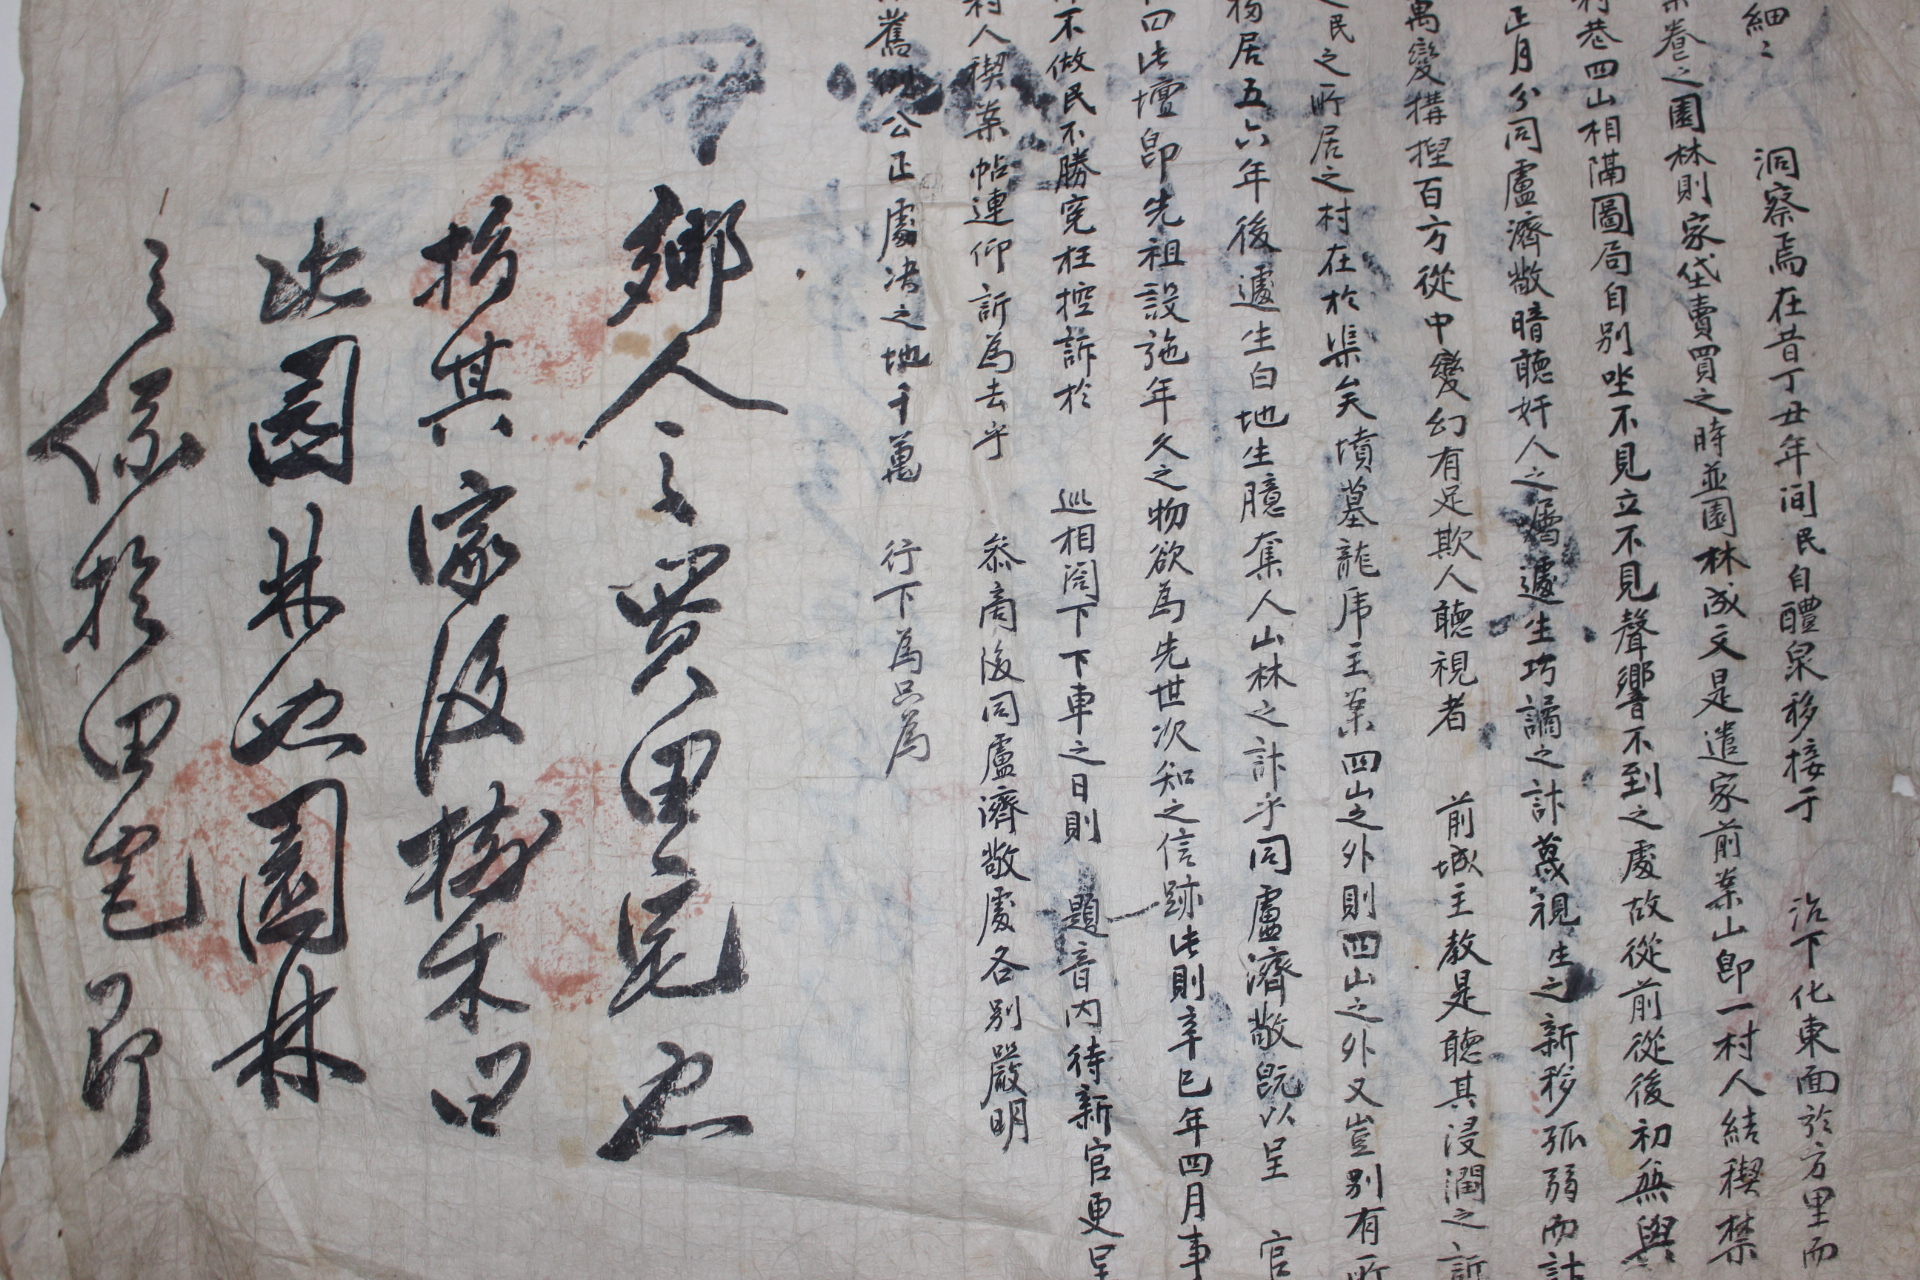 細〻 洞察焉在昔丁丑年間民自醴泉移接于 治下化東面於方里而
案卷之園林則家垈賣買之時並園林成文是遣家前案山卽一村人結稧禁
村巷四山相隔圖局自別坐不見立不見聲響不到之處故從前從後初無與
正月分同盧濟敞暗聽奸人之 遽生巧譎之計蔑視生之新移孤弱而
萬變構捏百方從中變幻有足欺人聽視者 前城主敎是聽其浸潤之訴
之民之所居之村在於渠矣墳墓龍虎主案四山之外則四山之外又豈別有所
物居五六年後遽生白地生臆奪人山林之計乎同盧濟敞旣以呈 官
四此壇卽先祖設施年久之物欲爲先世次知之信跡此則辛巳年四月事
不做民不勝寃枉控訴於 巡相閤下下車之日則 題音內待新官更呈
村人稧案帖連仰訴爲去乎 叅商後同盧濟敞處各別嚴明
公正處決之地千萬 行下爲只爲
鄉人之買里宅也
指其家後樹木曰
此園林也園林
之係於里宅卽